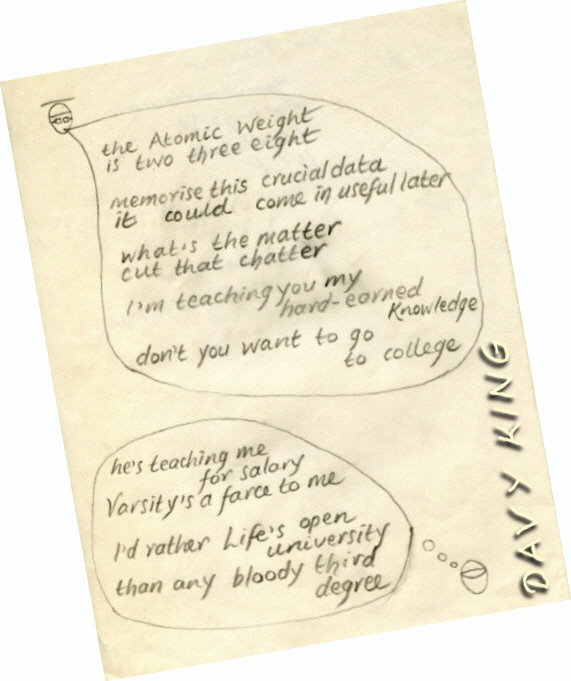 the Atomic Weight
is two three eight
memorise this crucial data
it could come in useful later
what's the matter
cut that chatter
I'm teaching you my
hard-earned
Knowledge
don't you want to go
to college
he's teaching me
for salary
Varsity's a farce to me
I'd rather Life's open
university
than any bloody third
degree
DAVY KING